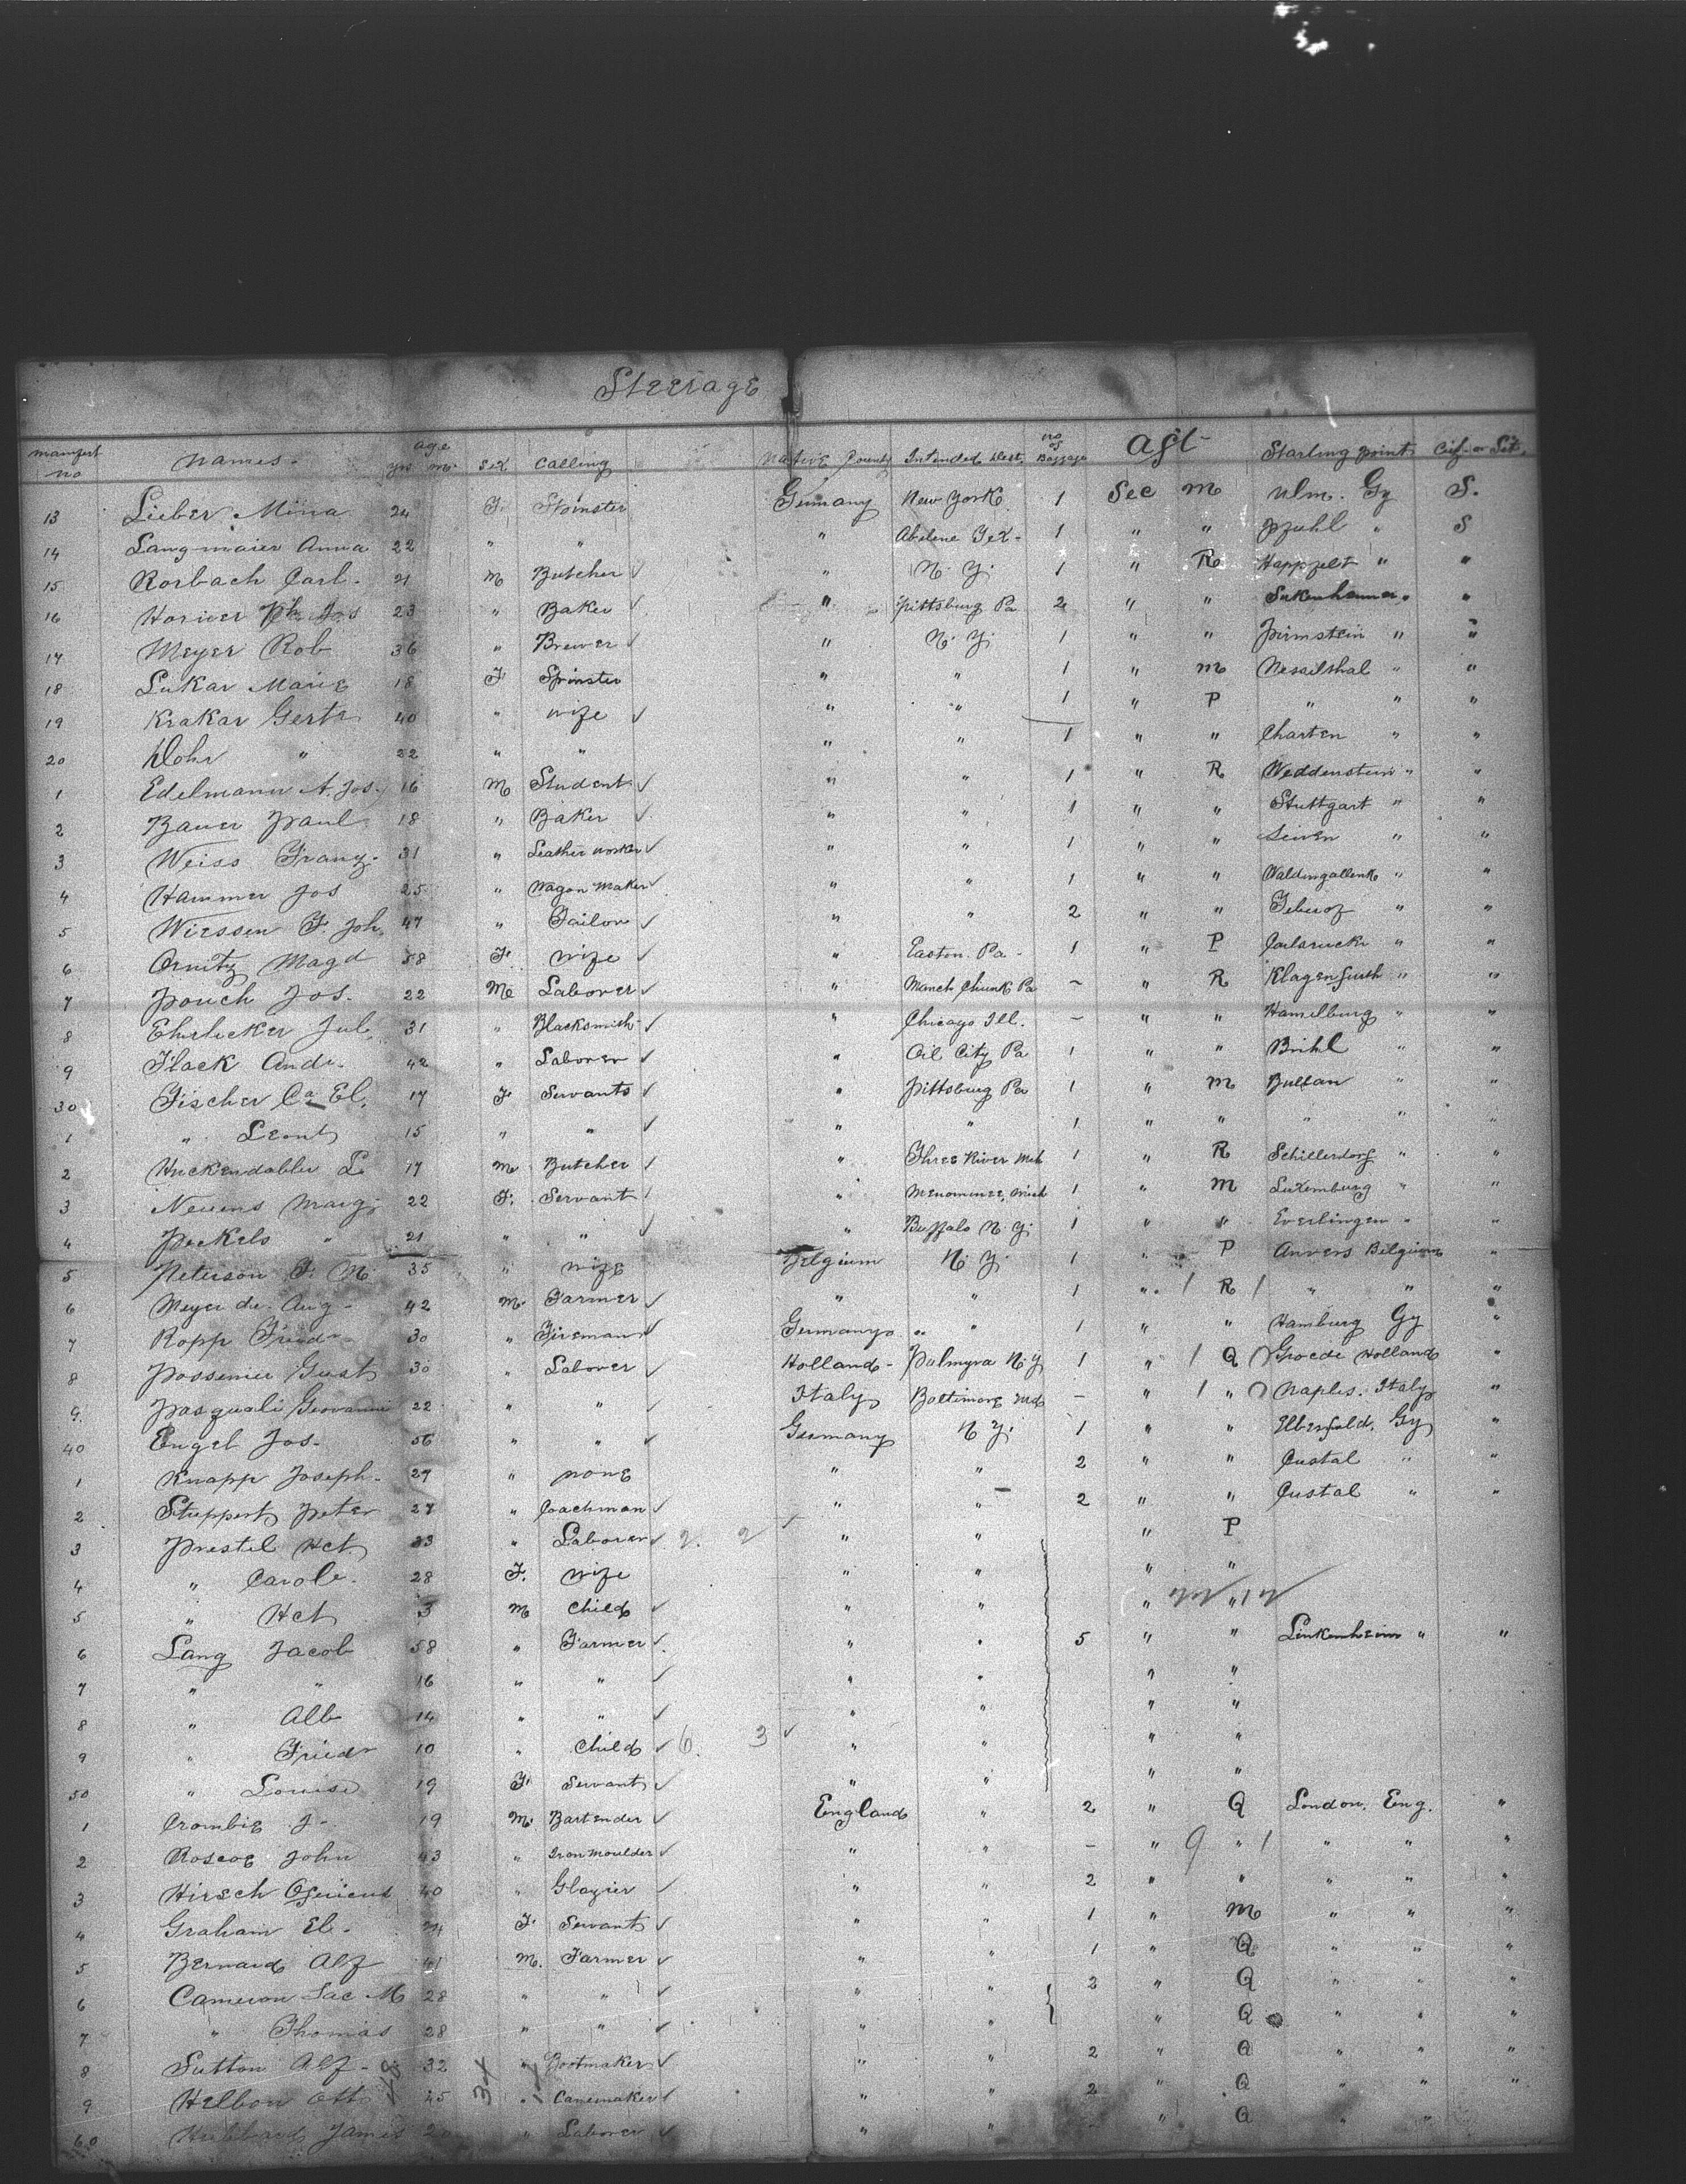 Steerage
manifest no names. age yrs m. sex Calling Native Country Intended Dest. no of Baggage Aft Starting point Cit. or Set.
13 Lieber Mina 24 F. Spinster Germany New York 1 Sec m Ulm. Gy S.
14 Langmaier Anna 22 " " " Abelene Tex- 1 " " Pfuhl " S
15 Rorbach Carl. 21 m Butcher " N. Y. 1 " R Happzelt " "
16 Ph. Jos 23 " Baker " Pittsburg Pa 2 " " "
17 Meyer Rob 36 " Brewer " N. Y. 1 " " Pirmstein " "
18 Lukar Marie 18 F Spinster " " 1 " m Nesselthal " "
19 Krakar Gertr 40 " wife " " 1 " P " " "
20 " 22 " " " " 1 " " Charten " "
1 Edelmann A. Jos. 16 M Student " " 1 " R Weddenstein " "
2 Bauer Paul 18 " Baker " " 1 " " Stuttgart " "
3 Weiss Franz. 31 " Leather worker " " 1 " " "
4 Hammer Jos 25 " Wagon Maker " " 1 " " "
5 Wirssen F. Joh. 47 " Tailor " " 2 " " "
6 Magd 58 F. wife " Easton. Pa - 1 " P Carlsrucke " "
7 Pouch Jos. 22 M Laborer " Manch Chunk Pa - " R Klagenfurth " "
8 Jul. 31 " Blacksmith " Chicago Ill. - " " Hamelburg " "
9 Flack Andr. 42 " Laborer " Oil City Pa 1 " " Brihl " "
30 Fischer Ca El. 17 F Servants " Pittsburg Pa 1 " m Bultan " "
1 " Leont 15 " " " " 1 " " " " "
2 Huckendabler L 17 m Butcher " Three River Mch 1 " R Schillersdorf " "
3 Neuens Marg. 22 F. Servant " Menominee, Mich 1 " m Luxemburg " "
4 Peckels " 21 " " " Buffalo N. Y. 1 " " Everlingen " "
5 Peterson F. M. 35 " wife Belgium N. Y. 1 " P Anvers Belgium "
6 Meyer de Aug - 42 M. Farmer " " 1 " R " " "
7 Ropp Friedr 30 " Fireman Germany " " 1 " " Hamburg Gy "
8 Possenier Gust 30 " Laborer Holland - Palmyra N.Y 1 " Q Groede Holland "
9. Pasquali Giovanni 22 " " Italy Baltimore Md - " " Naples. Italy "
40 Engel Jos. 56 " " Germany N. Y. 1 " " Elberfeld. Gy "
1 Knapp Joseph. 27 " none " " 2 " " Custal " "
2 Stuppert Peter 27 " Coachman " " 2 " " Custal " "
3 Prestel Hct 33 " Laborer 2. 2 " " " P
4 " Carole. 28 F. wife " " " "
5 " Hct 3 M Child " " " "
6 Lang Jacob 58 " Farmer " " 5 " " Linkenheim " "
7 " " 16 " " " " " "
8 " Alb 14 " " " " " "
9 " Friedr 10 " Child 6. 3 " " " "
50 " Louise 19 F. Servant " " " "
1 Crombie J - 19 M. Bartender England " 2 " Q London. Eng. "
2 Roscoe John 43 " Iron Moulder " " - " 9 " " " "
3 Hirsch 40 " Glazier " " 2 " " " " "
4 Graham El - 24 F. Servant " " 1 " m " " "
5 Bernard Alf 41 M. Farmer " " 1 " Q " " "
6 Cameron M 28 " " " " 2 " Q " " "
7 " Thomas 28 " " " " " Q " " "
8 Sutton Alf - 32 " Bootmaker " " 2 " Q " " "
9 Helbon Otto 45 " Canemaker " " 2 " Q " " "
60 Hubbard James " Laborer " " " Q " "
48 34 14